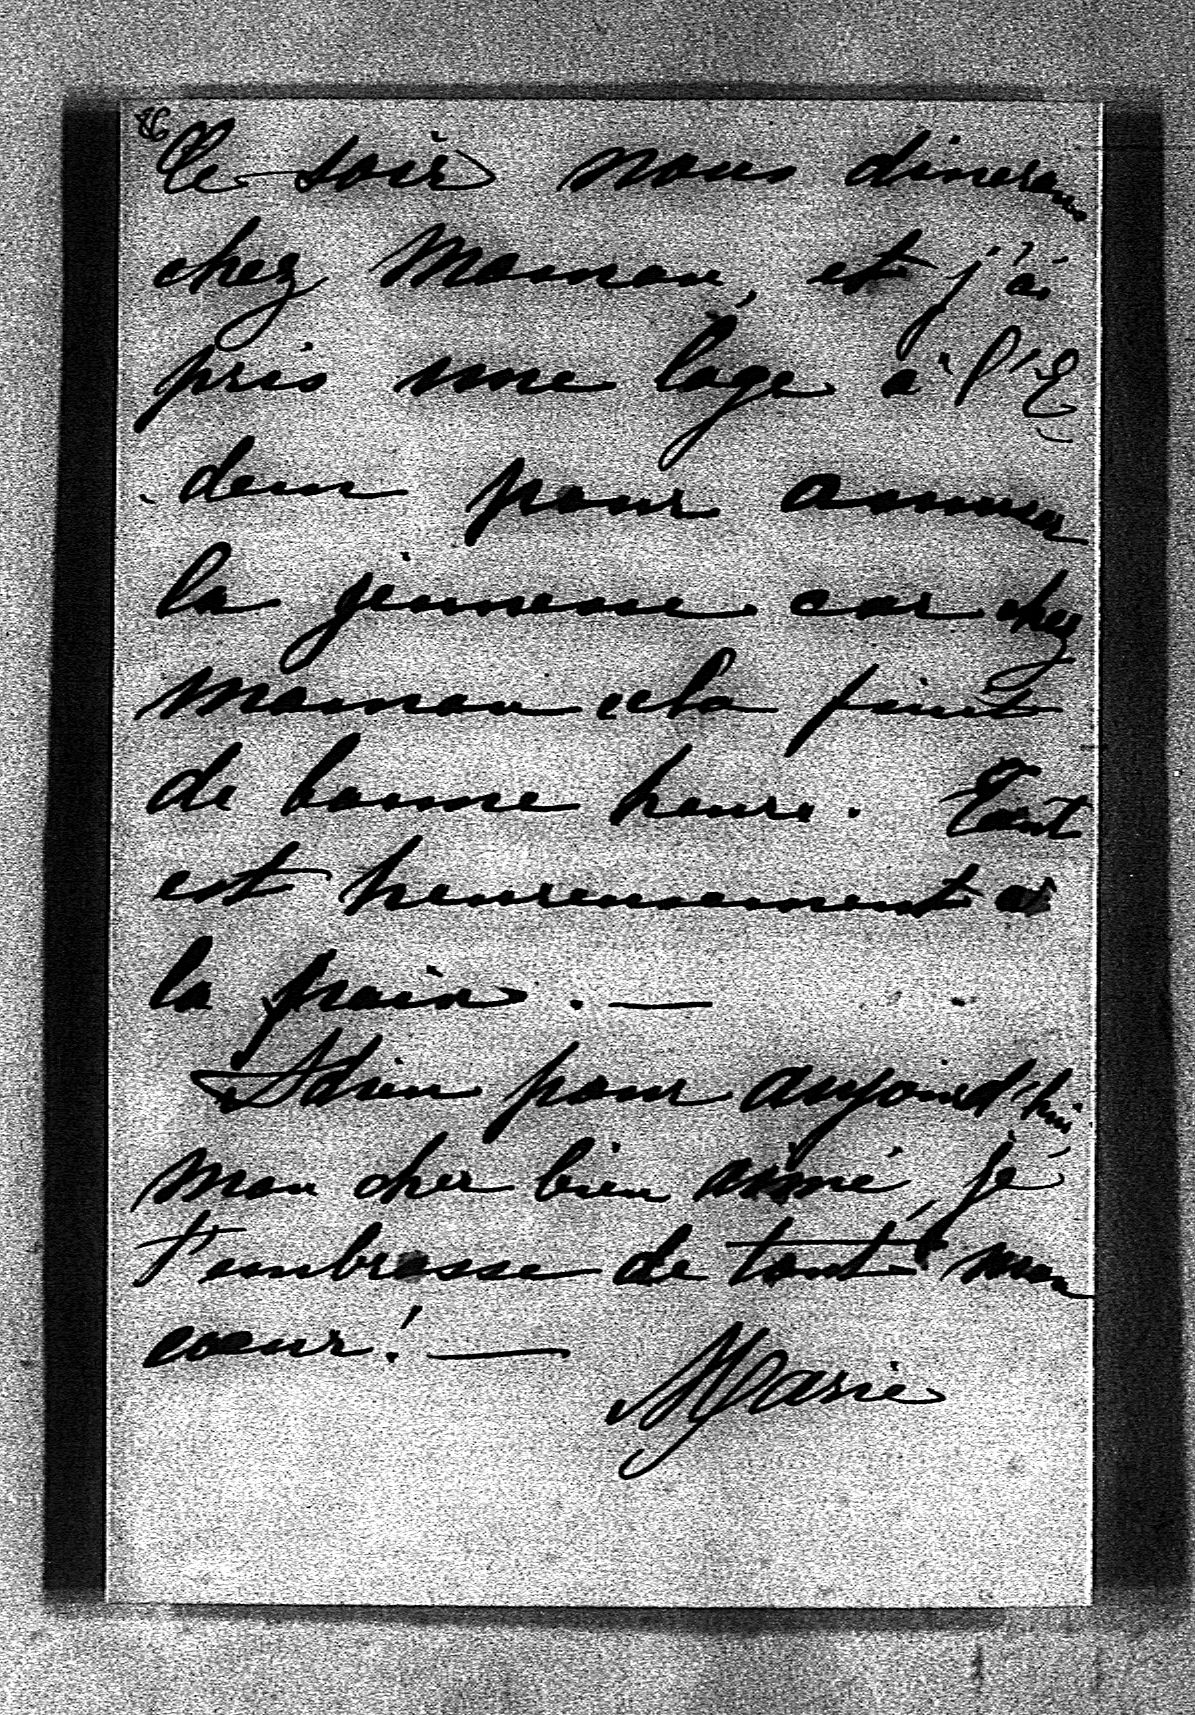 86
Ce soir nous dinerons
chez Maman, et j'ai
pris une loge à l'E
-den pour amuser
la jeunesse car chez
maman cela finit
de bonne heure. Tout
est heureusement à
la paix. —
Adieu pour aujourd'hui
mon cher bien aimé, je
t'embrasse de tout mon
coeur! —
Marie